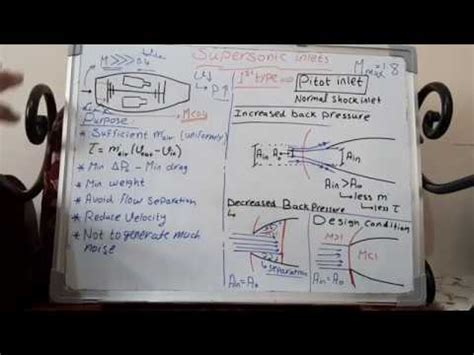 Supersonic inlets
M>>> 0.4
M<0.4
Purpose:
* Sufficient ṁair (uniformly)
τ = ṁair (Uout - Uin)
* Min ΔP₀ - Min drag
* Min weight
* Avoid flow separation
* Reduce Velocity
* Not to generate much
noise
U↓ → P↑
Mmax = 1.8
1st type ⇒ Pitot inlet
Normal shock inlet
Increased back pressure
Ain A∞
Ain
Ain > A∞
↳ less ṁ
↳ less τ
Decreased Back Pressure
↳ separation
Ain = A∞
Design Condition
M>1
M<1
Ain = A∞